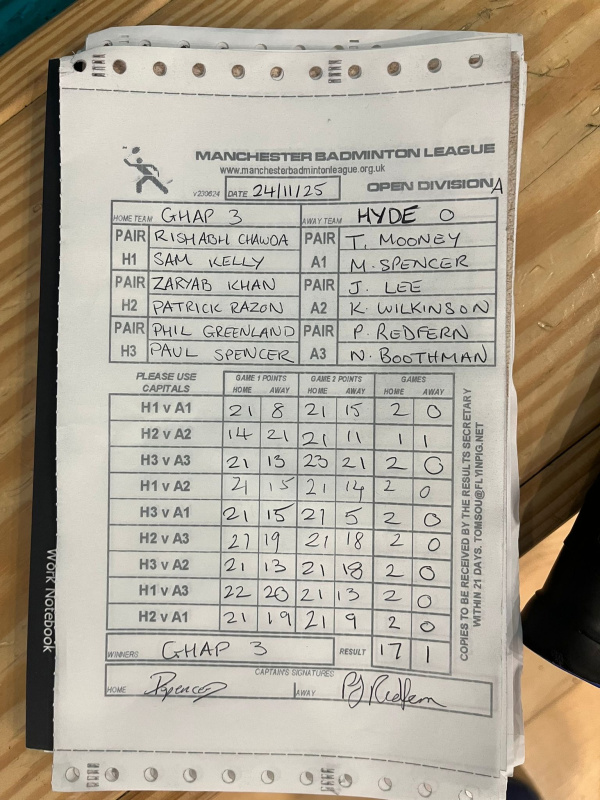 MANCHESTER BADMINTON LEAGUE
www.manchesterbadmintonleague.org.uk
V230624 DATE 24/11/25 OPEN DIVISION A
HOME TEAM GHAP 3 AWAY TEAM HYDE O
PAIR RISHABH CHAWDA PAIR T. MOONEY
H1 SAM KELLY A1 M. SPENCER
PAIR ZARYAB KHAN PAIR J. LEE
H2 PATRICK RAZON A2 K. WILKINSON
PAIR PHIL GREENLAND PAIR P. REDFERN
H3 PAUL SPENCER A3 N. BOOTHMAN
PLEASE USE CAPITALS GAME 1 POINTS GAME 2 POINTS GAMES
HOME AWAY HOME AWAY HOME AWAY
H1 v A1 21 8 21 15 2 0
H2 v A2 14 21 21 11 1 1
H3 v A3 21 13 23 21 2 0
H1 v A2 21 15 21 14 2 0
H3 v A1 21 15 21 5 2 0
H2 v A3 21 19 21 18 2 0
H3 v A2 21 13 21 18 2 0
H1 v A3 22 20 21 13 2 0
H2 v A1 21 19 21 9 2 0
WINNERS GHAP 3 RESULT 17 1
CAPTAIN'S SIGNATURES
HOME PSpencer AWAY PJ Redfern
COPIES TO BE RECEIVED BY THE RESULTS SECRETARY
WITHIN 21 DAYS. TOMSOU@FLYINPIG.NET
Work Notebook